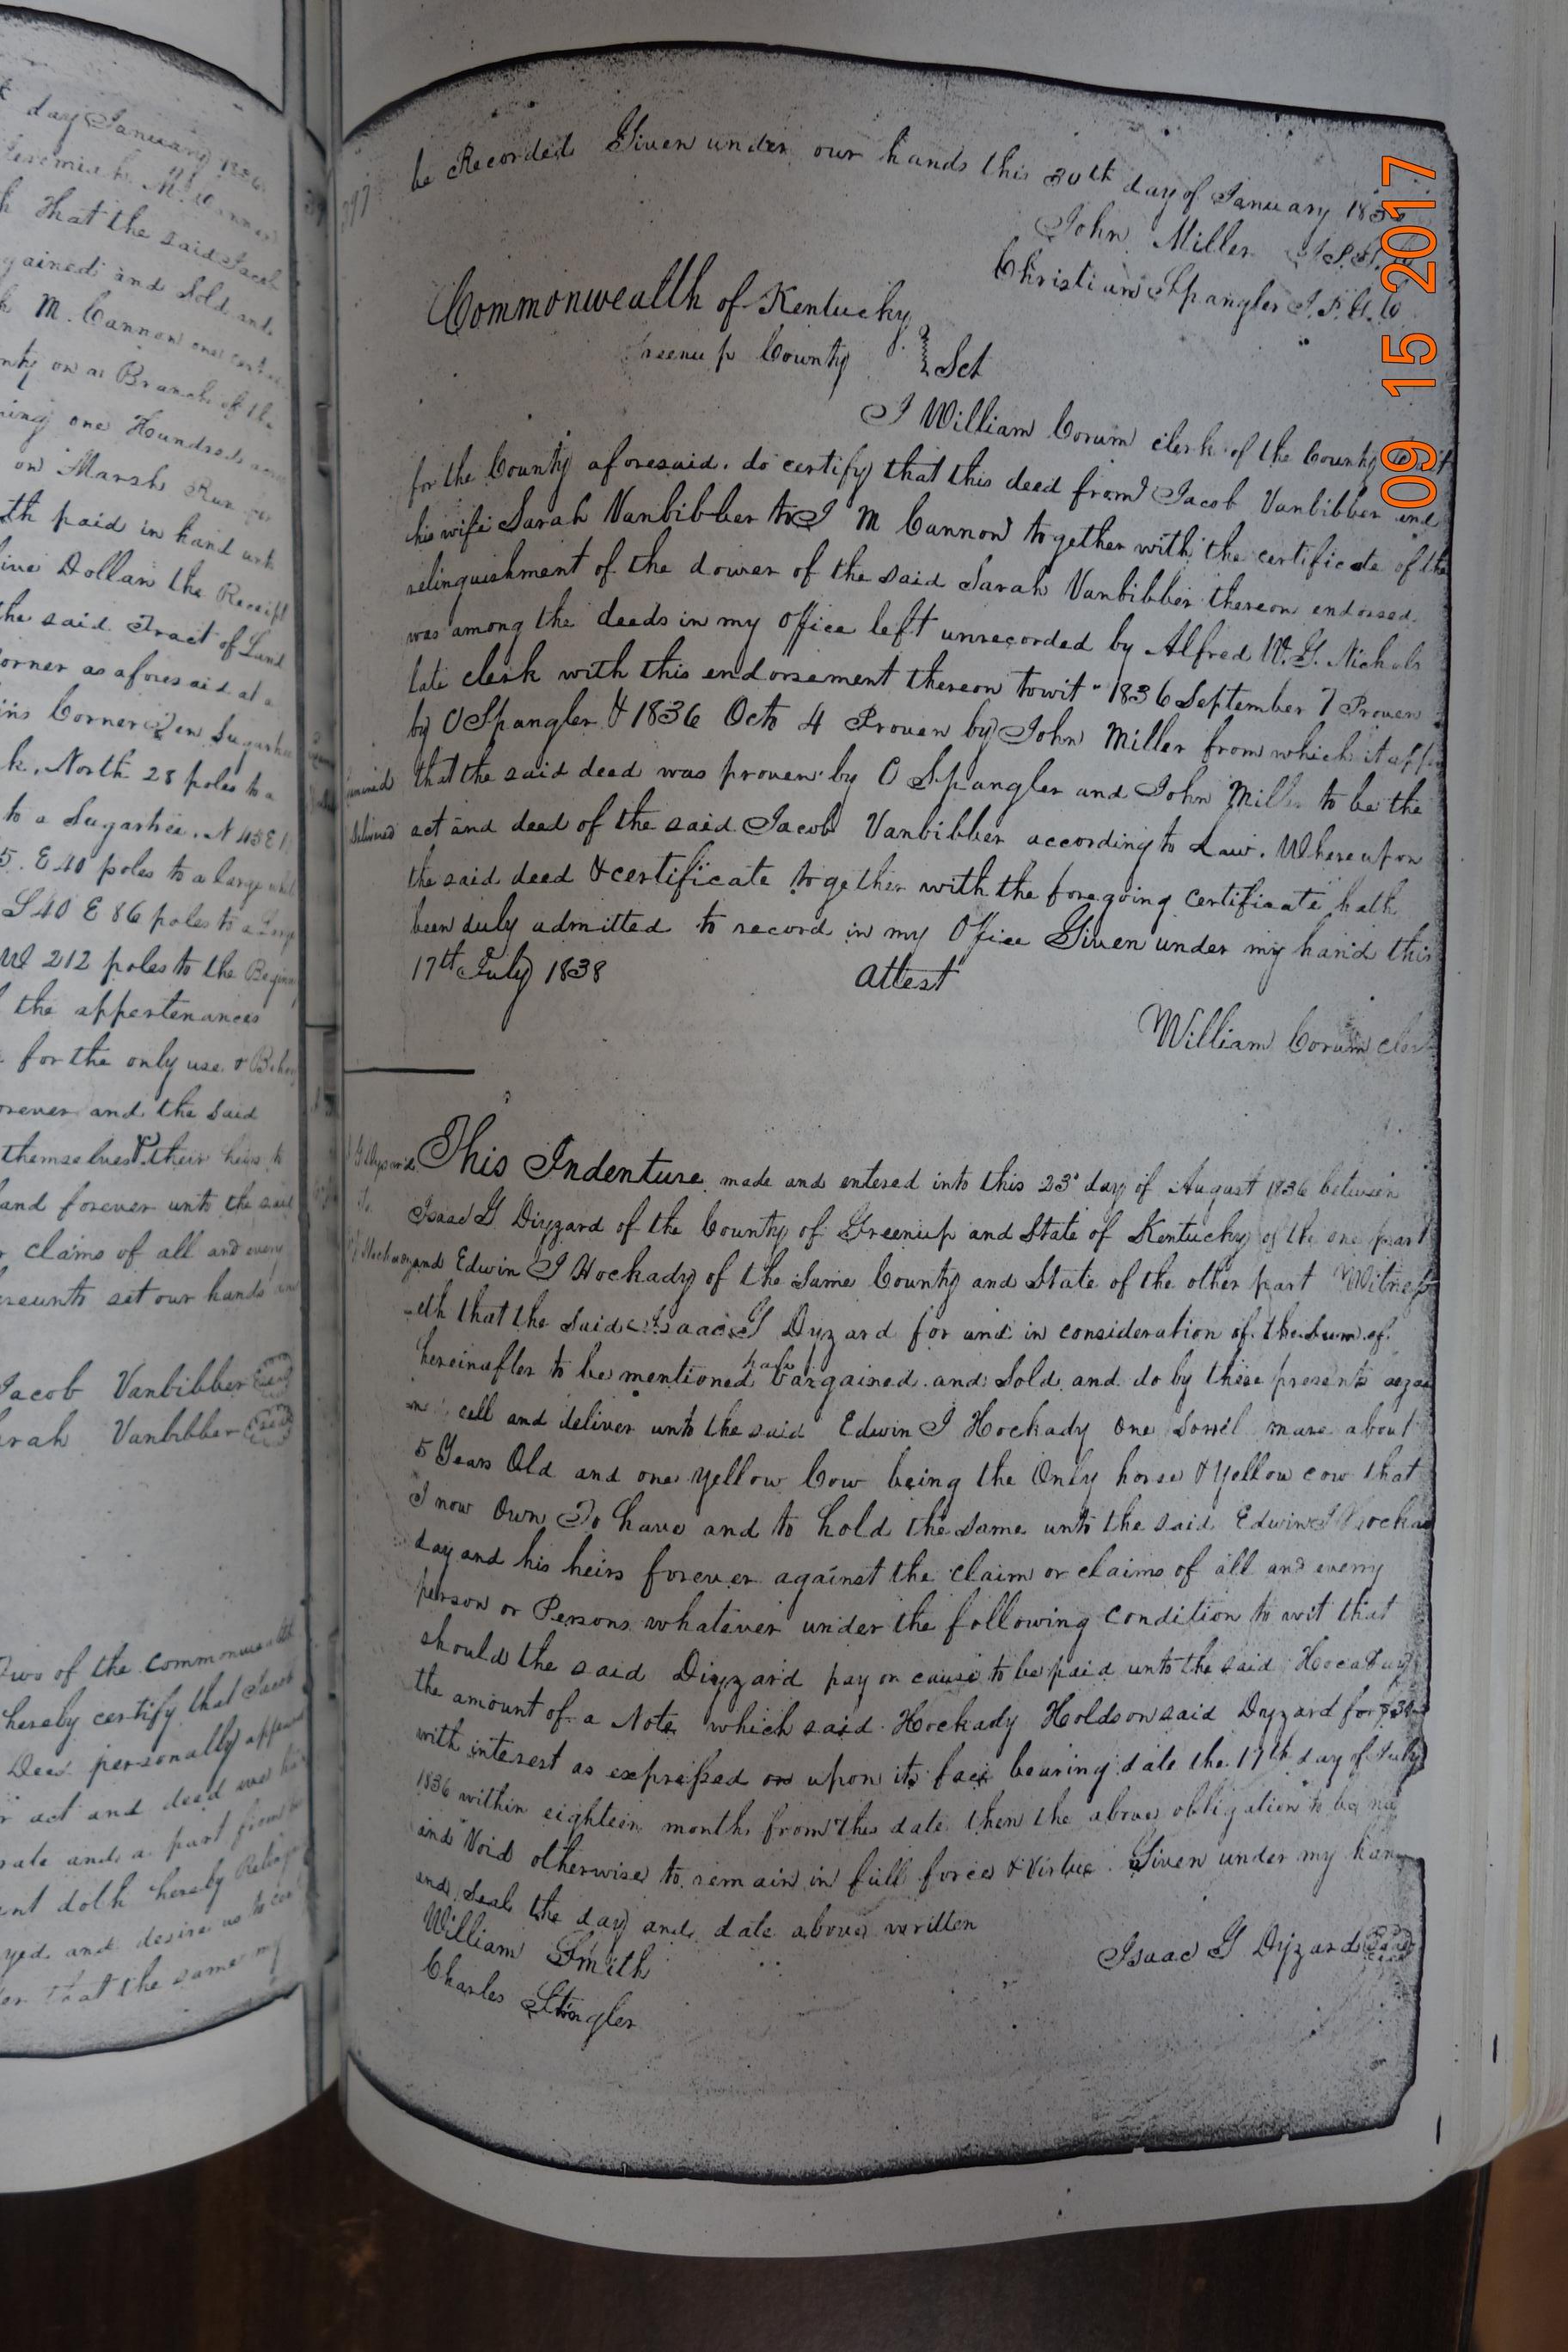 day January 1836
Jeremiah M. Cannon
That the said Jacob
gained and Sold and
M. Cannon one certain
on a Branch of the
one Hundred acres
on Marsh Run
th paid in hand
five Dollars the Receipt
the said Tract of Land
corner as aforesaid at a
Corner
North 28 poles to a
to a Sugartree. N 45 E
5. E 40 poles to a large
S 40 E 86 poles to a
W 212 poles to the
the appertenances
for the only use &
orever and the said
themselves & their heirs
and forever unto the said
claims of all and every
ereunto set our hands and
Jacob Vanbibber Seal
arah Vanbibber Seal
Two of the commonwealth
hereby certify that Jacob
Deed personally
act and deed and
and a part from
ent doth hereby
and desire us to
that the same
be Recorded Given under our hands this 30th day of January 1836
John Miller
Christian Spangler J.P.G.C
Commonwealth of Kentucky
Greenup County } Sct
I William Corum clerk of the County Court
for the County aforesaid. do certify that this deed from Jacob Vanbibber and
his wife Sarah Vanbibber to J M Cannon together with the certificate of the
relinquishment of the dower of the said Sarah Vanbibber thereon endorsed.
was among the deeds in my Office left unrecorded by Alfred W. G. Nichols
late clerk with this endorsement thereon towit "1836 September 7 Proven
by C Spangler & 1836 Octo 4 Proven by John Miller from which it
that the said deed was proven by C Spangler and John Miller to be the
Delivered act and deed of the said Jacob Vanbibber according to Law. Whereupon
the said deed & certificate together with the foregoing certificate hath
been duly admitted to record in my Office Given under my hand this
17th July 1838 Attest
William Corum clerk
This Indenture made and entered into this 23d day of August 1836 between
to Isaac G Dizzard of the County of Greenup and State of Kentucky of the one part
and Edwin J Hockady of the Same County and State of the other part Witness
eth that the Said Isaac G Dyzard for and in consideration of the Sum of
hereinafter to be mentioned hath bargained and Sold and do by these presents
cell and deliver unto the said Edwin J Hockady One Sorrel mare about
5 Years Old and one Yellow Cow being the Only horse & Yellow cow that
I now Own To have and to hold the same unto the said Edwin J
day and his heirs forever against the claim or claims of all and every
person or Persons whatever under the following condition to wit that
should the said Dizzard pay or cause to be paid unto the said
the amount of a Note which said Hockady Holds on said Dyzard for
with interest as expressed on upon its face bearing date the 17th day of July
1836 within eighteen months from this date then the above obligation to be
and Void otherwise to remain in full force & Virtue. Given under my
and Seal the day and date above written
William Smith
Isaac G Dyzard Seal
Charles
09 15 2017